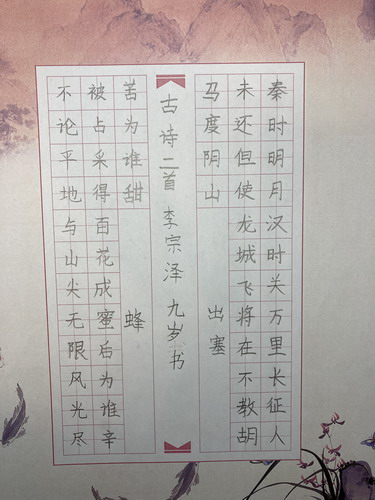 秦时明月汉时关万里长征人
未还但使龙城飞将在不教胡
马度阴山 出塞
古诗二首 李宗泽 九岁书
不论平地与山尖无限风光尽
被占采得百花成蜜后为谁辛
苦为谁甜 蜂